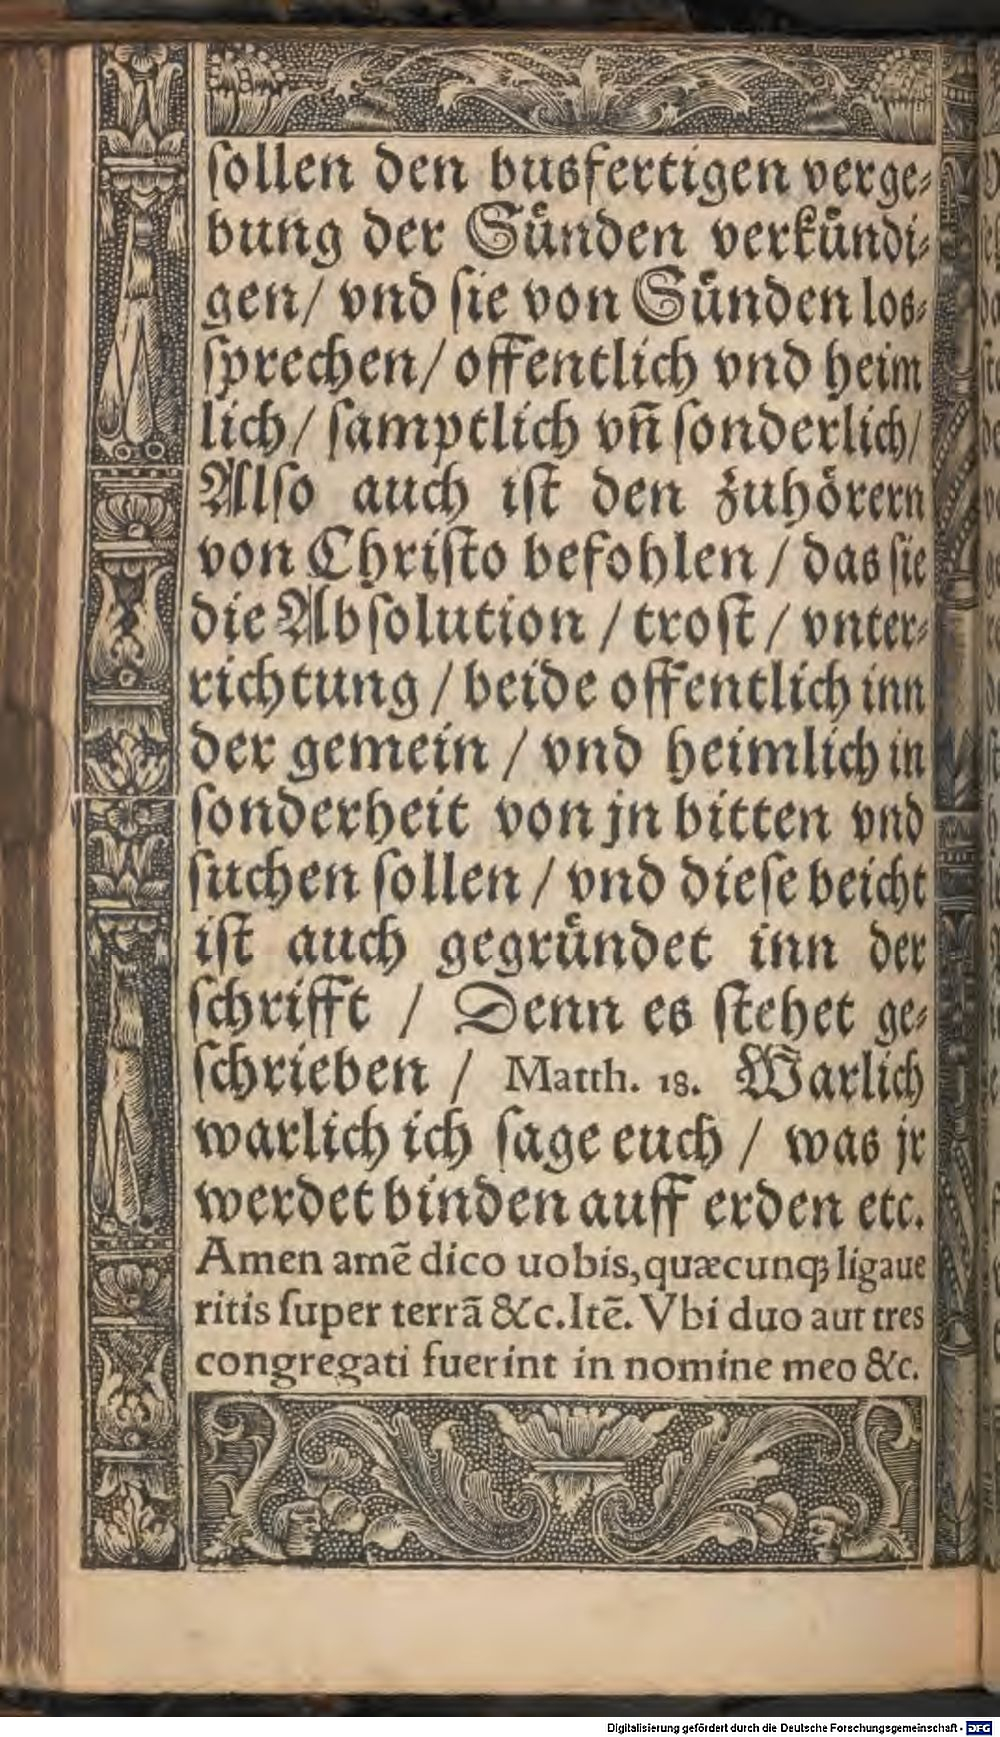 ſollen den busfertigen verge⸗
bung der Sünden verkündi⸗
gen/ vnd ſie von Sünden los⸗
ſprechen/ offentlich vnd heim
lich/ ſamptlich vñ ſonderlich/
Alſo auch iſt den zuhörern
von Chriſto befohlen / das ſie
die Abſolution / troſt / vnter⸗
richtung / beide offentlich inn
der gemein / vnd heimlich in
ſonderheit von jn bitten vnd
ſuchen ſollen / vnd dieſe beicht
iſt auch gegründet inn der
ſchrifft / Denn es ſtehet ge⸗
ſchrieben / Matth. 18. Warlich
warlich ich ſage euch / was jr
werdet binden auff erden etc.
Amen amẽ dico uobis, quæcunqꝫ ligaue
ritis ſuper terrã &c. Itẽ. Vbi duo aut tres
congregati fuerint in nomine meo &c.
Digitalisierung gefördert durch die Deutsche Forschungsgemeinschaft - DFG